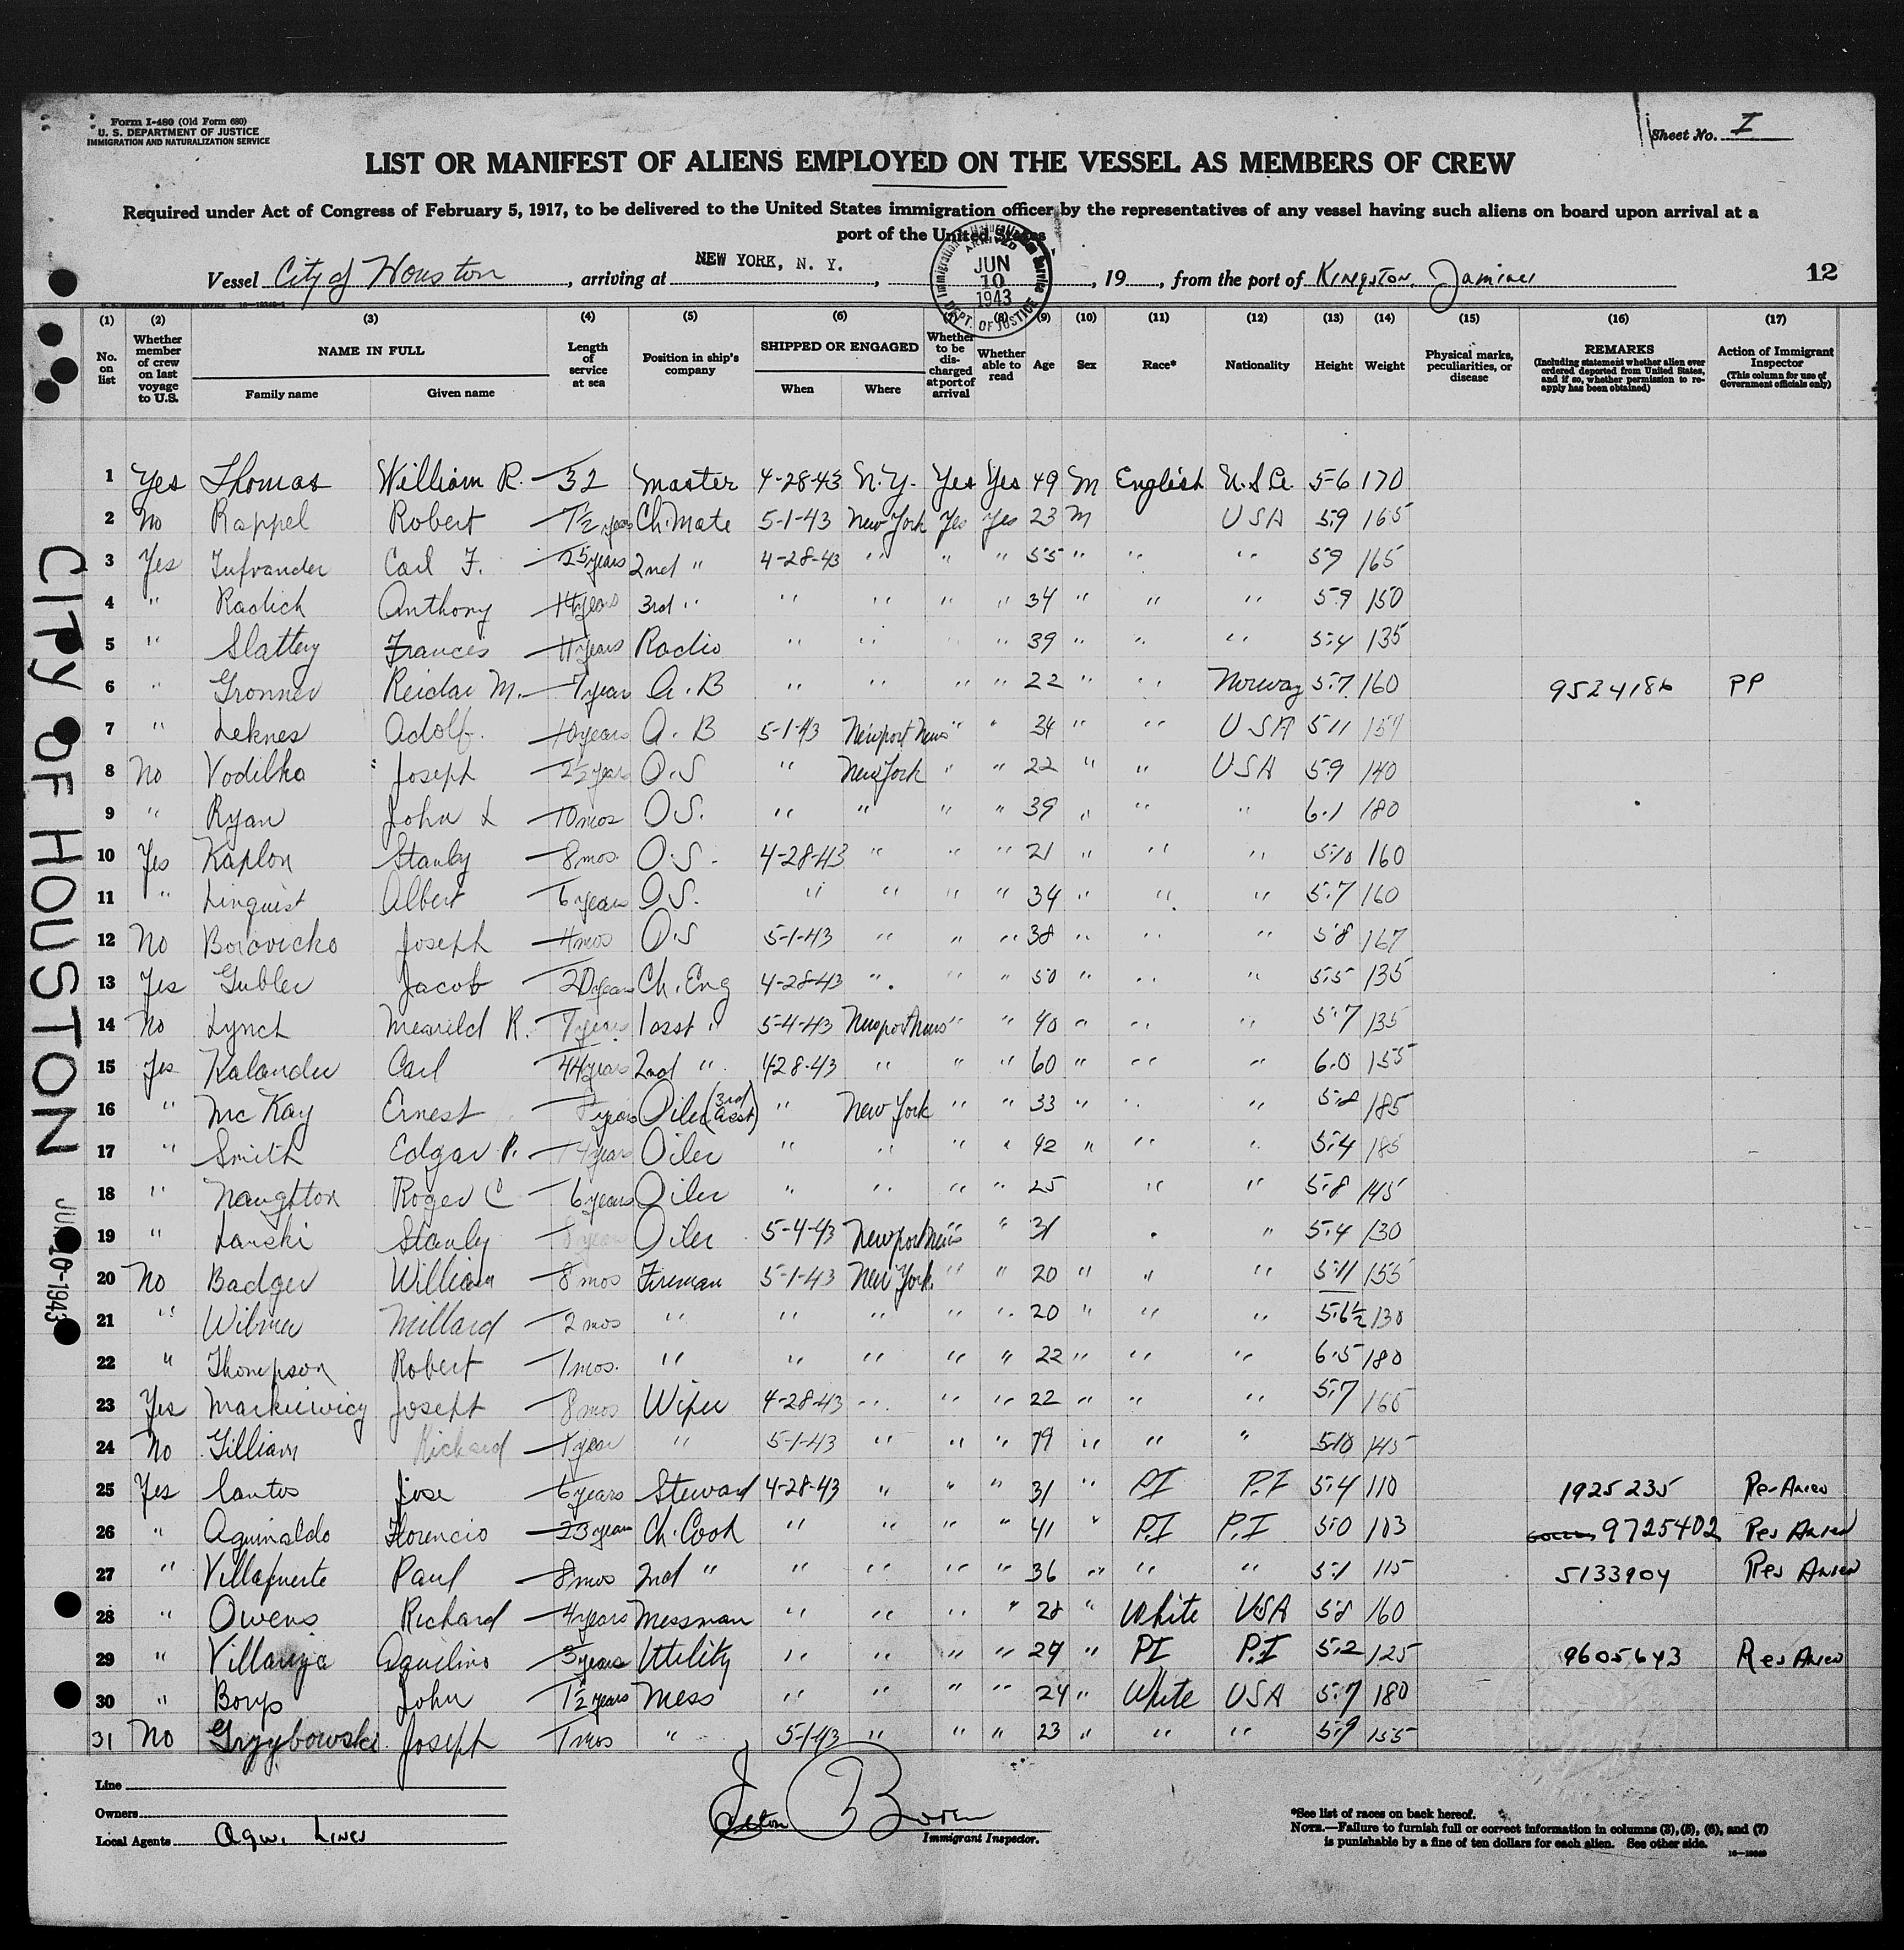 Form I-480 (Old Form 680)
U. S. DEPARTMENT OF JUSTICE
IMMIGRATION AND NATURALIZATION SERVICE
Sheet No. I
LIST OR MANIFEST OF ALIENS EMPLOYED ON THE VESSEL AS MEMBERS OF CREW
Required under Act of Congress of February 5, 1917, to be delivered to the United States immigration officer by the representatives of any vessel having such aliens on board upon arrival at a
port of the United States
Vessel City of Houston, arriving at NEW YORK, N. Y., 19, from the port of Kingston,
ARRIVED JUN 10 1943 DEPT. OF JUSTICE
12
(1) (2) (3) (4) (5) (6) (8) (9) (10) (11) (12) (13) (14) (15) (16) (17)
No. on list
Whether member of crew on last voyage to U.S.
NAME IN FULL
Family name Given name
Length of service at sea
Position in ship's company
SHIPPED OR ENGAGED
When Where
Whether to be discharged at port of arrival
Whether able to read
Age Sex Race* Nationality Height Weight
Physical marks, peculiarities, or disease
REMARKS
(Including statement whether alien ever ordered deported from United States, and if so, whether permission to re-apply has been obtained)
Action of Immigrant Inspector
(This column for use of Government officials only)
1 Yes Thomas William R. 32 Master 4-28-43 N.Y. Yes Yes 49 M English 5-6 170
2 No Rappel Robert 1½ years Ch. Mate 5-1-43 New York Yes Yes 23 M USA 5:9 165
3 Yes Carl F. 25 years 2nd " 4-28-43 " " " 55 " " " 5:9 165
4 " Radich Anthony 14 years 3rd " " " " " 34 " " " 5:9 150
5 " Slattery Frances 11 years Radio " " " 39 " " " 5:4 135
6 " Reidar M. 7 year A.B " " " " 22 " " Norway 5:7 160 9524186 PP
7 " Leknes Adolf. 10 years A.B 5-1-43 Newport News " " 34 " " USA 5:11
8 No Vodilko Joseph 2½ years O.S " New York " " 22 " " USA 5:9 140
9 " Ryan John L 10 mos O.S. " " " " 39 " " " 6.1 180
10 Yes Kaplon Stanly 8 mos. O.S. 4-28-43 " " " 21 " " " 5:10 160
11 " Linquist Albert 6 years O.S. " " " " 34 " " " 5:7 160
12 No Borovicko Joseph 4 mos O.S 5-1-43 " " " 38 " " " 5:8 167
13 Yes Gubler Jacob 20 years Ch. Eng 4-28-43 " " " 50 " " " 5:5 135
14 No Lynch R. 7 years 1 asst " 5-4-43 Newport News " " 40 " " " 5:7 135
15 Yes Kalander Carl 44 years 2nd " 4-28-43 " " " 60 " " " 6.0 155
16 " McKay Ernest years Oiler (3rd asst) " New York " " 33 " " " 5:8 185
17 " Smith Edgar P. 14 years Oiler " " " " 42 " " " 5:4 185
18 " Naughton Roger C 6 years Oiler " " " " 25 " " 5:8 145
19 " Larski Stanly 8 years Oiler 5-4-43 Newport News " " 31 " 5:4 130
20 No Badger William 8 mos Fireman 5-1-43 New York " " 20 " " " 5:11 155
21 " Wilmer Millard 2 mos " " " " " 20 " " " 5:6½ 130
22 " Thompson Robert 1 mos. " " " " " 22 " " " 6:5 180
23 Yes Markiewicz Joseph 8 mos Wiper 4-28-43 " " " 22 " " " 5:7 165
24 No Gilliam Richard 1 year " 5-1-43 " " " 19 " " " 5:10 145
25 Yes Santos Jose 6 years Steward 4-28-43 " " " 31 " P.I P.I 5:4 110 1925235
26 " Aguinaldo Florencio 23 years Ch. Cook " " " " 41 " P.I P.I 5:0 103 9725402
27 " Villafuerte Paul 8 mos 2nd " " " " " 36 " " " 5:1 115 5133904
28 " Owens Richard 4 years Messman " " " " 28 " White USA 5:8 160
29 " Aquilino 3 years Utility " " " " 29 " P.I P.I 5:2 125 9605643
30 " Borys John 1½ years Mess " " " " 24 " White USA 5:7 180
31 No Grzybowski Joseph 1 mos " 5-1-43 " " " 23 " " " 5:9 155
CITY OF HOUSTON
JUN 10 1943
Line
Owners
Local Agents Agw. Lines
Immigrant Inspector.
*See list of races on back hereof.
NOTE.—Failure to furnish full or correct information in columns (3), (5), (6), and (7)
is punishable by a fine of ten dollars for each alien. See other side.